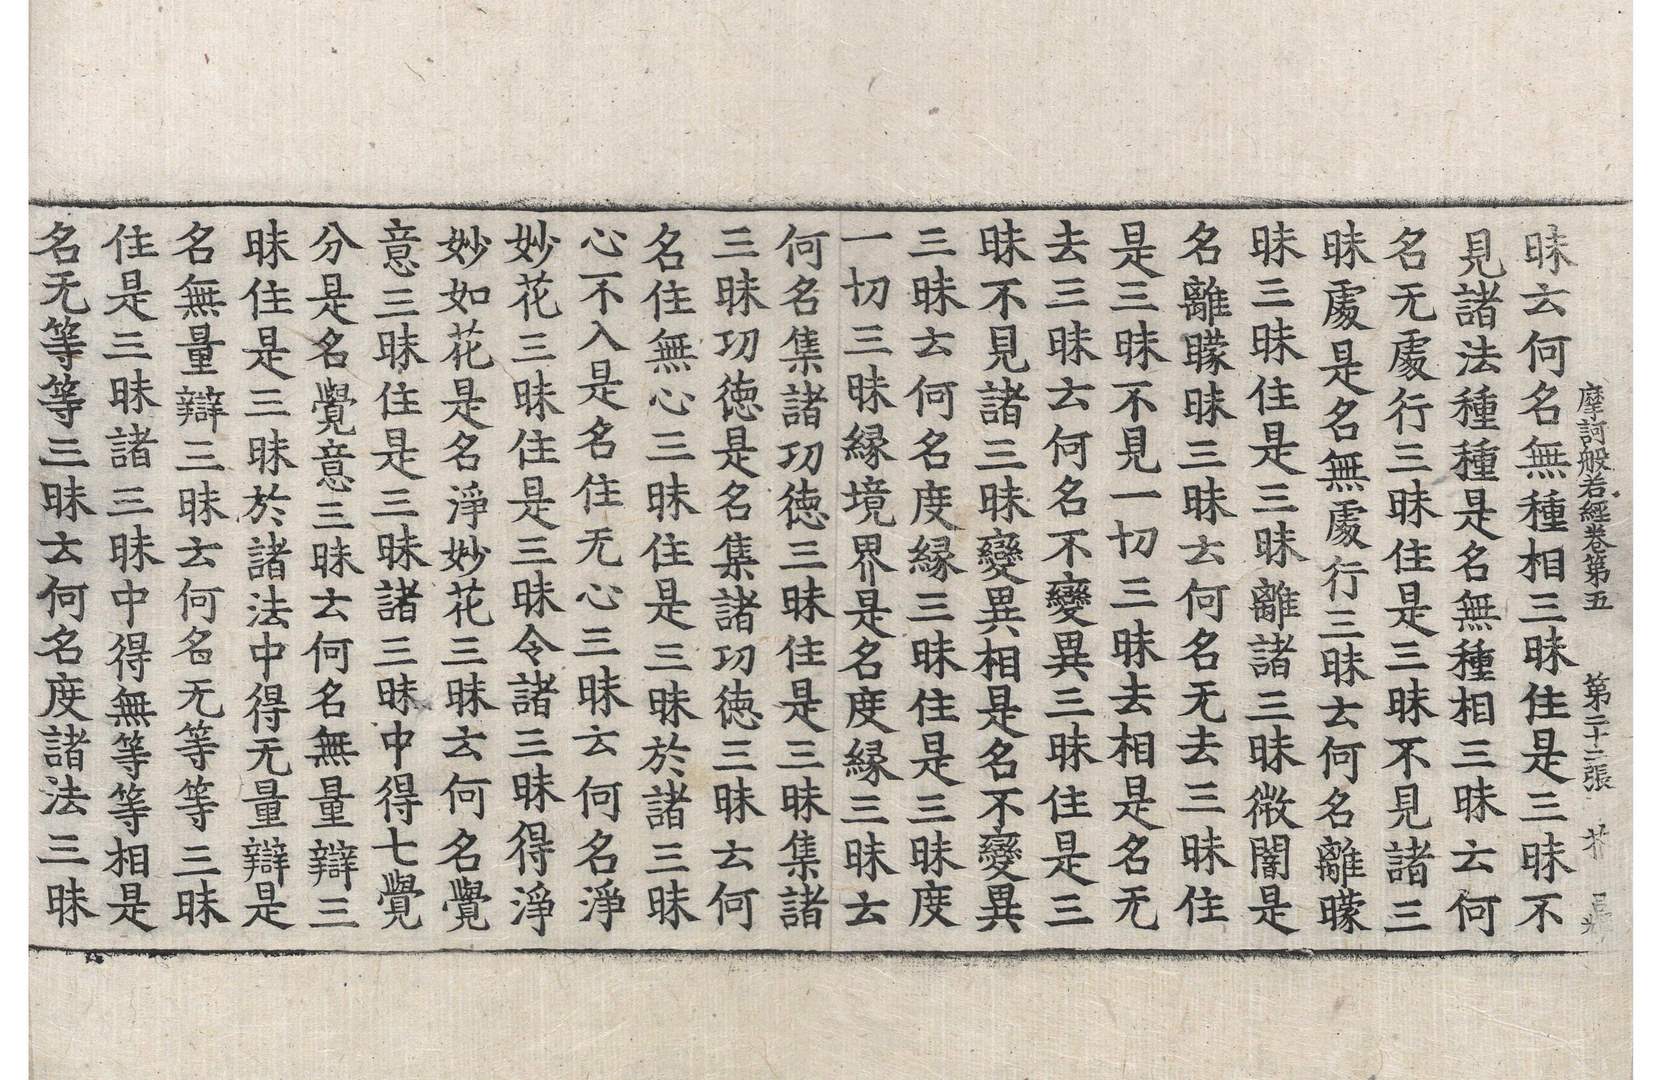 摩訶般若經卷第五　第二十二張　𦬇
昧云何名無種相三昧住是三昧不
見諸法種種是名無種相三昧云何
名无處行三昧住是三昧不見諸三
昧處是名無處行三昧云何名離曚
昧三昧住是三昧離諸三昧微闇是
名離曚昧三昧云何名无去三昧住
是三昧不見一切三昧去相是名无
去三昧云何名不變異三昧住是三
昧不見諸三昧變異相是名不變異
三昧云何名度緣三昧住是三昧度
一切三昧緣境界是名度緣三昧云
何名集諸功德三昧住是三昧集諸
三昧功德是名集諸功德三昧云何
名住無心三昧住是三昧於諸三昧
心不入是名住无心三昧云何名淨
妙花三昧住是三昧令諸三昧得淨
妙如花是名淨妙花三昧云何名覺
意三昧住是三昧諸三昧中得七覺
分是名覺意三昧云何名無量辯三
昧住是三昧於諸法中得无量辯是
名無量辯三昧云何名无等等三昧
住是三昧諸三昧中得無等等相是
名无等等三昧云何名度諸法三昧